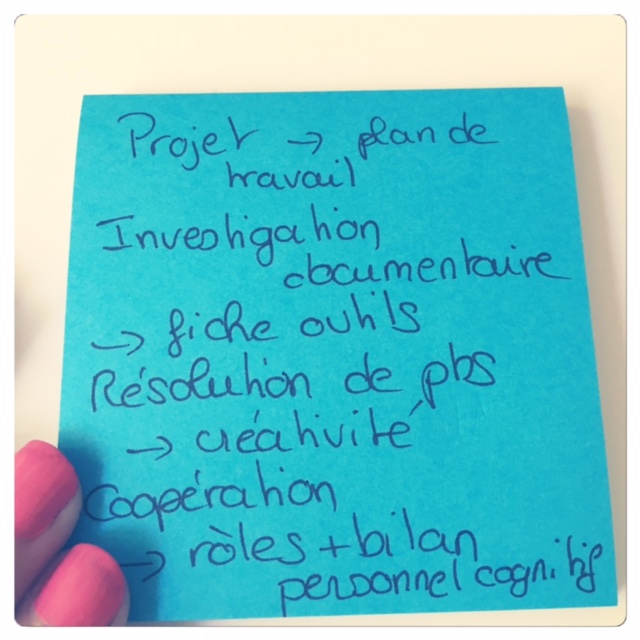 Projet → plan de
travail
Investigation
documentaire
→ fiche outils
Résolution de pbs
→ créativité
Coopération
→ rôles + bilan
personnel cognitif